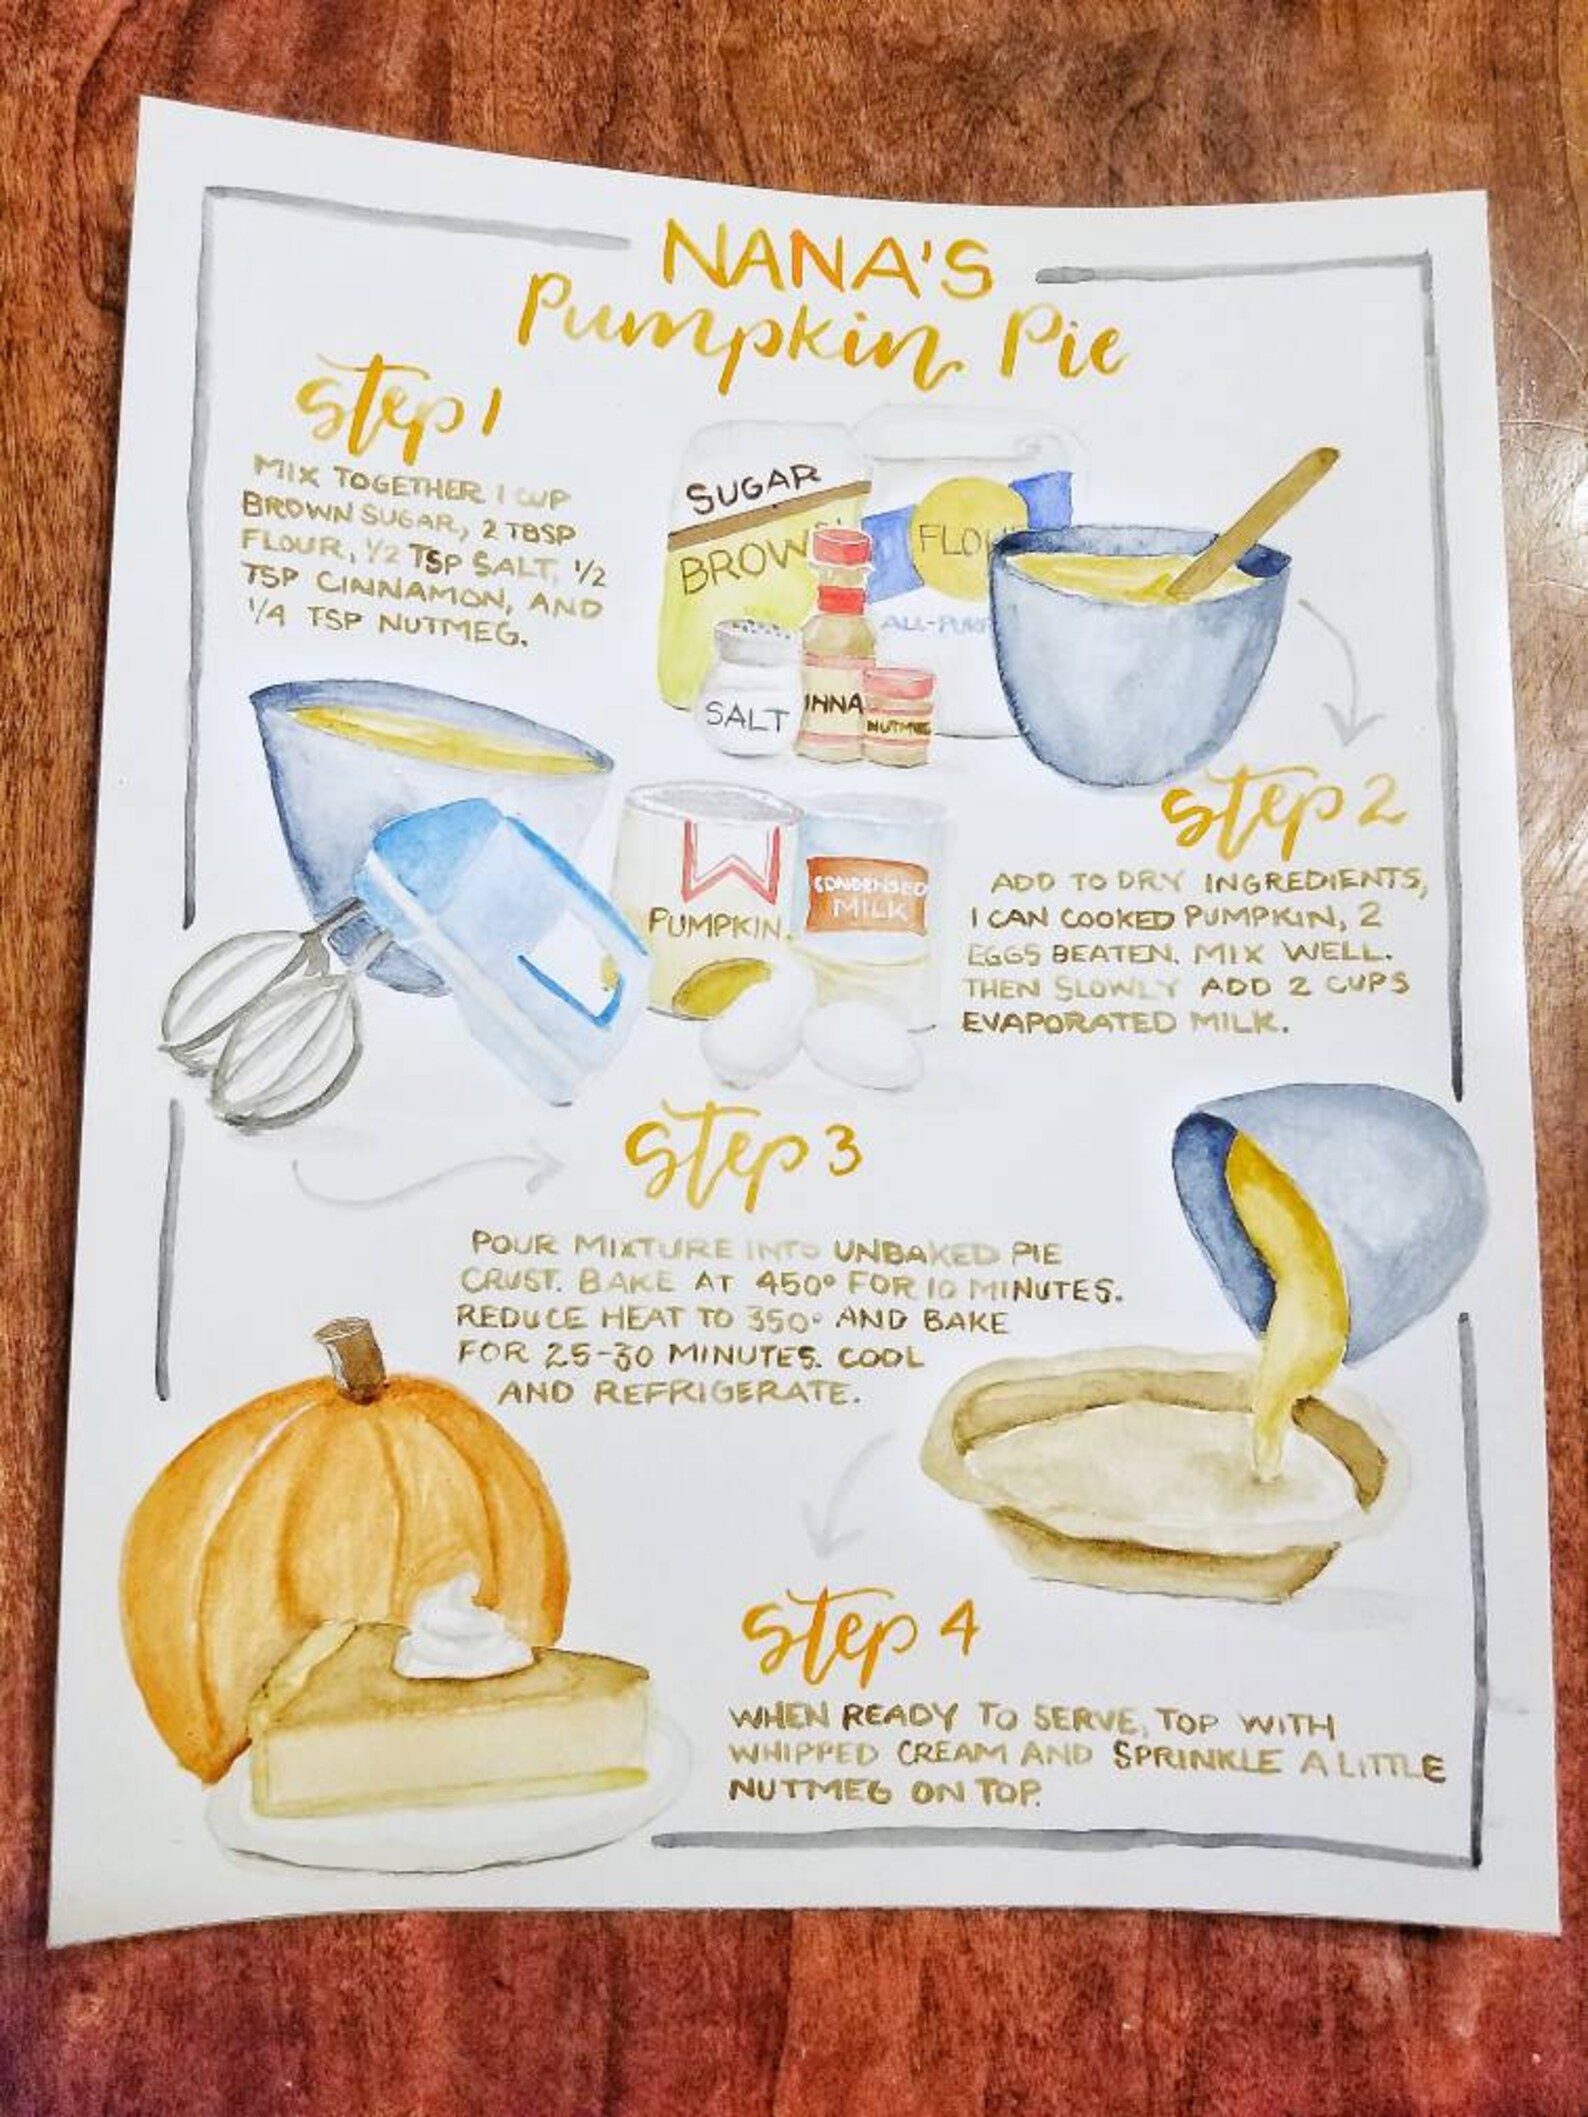 NANA'S
Pumpkin Pie
Step 1
MIX TOGETHER 1 CUP
BROWN SUGAR, 2 TBSP
FLOUR, 1/2 TSP SALT, 1/2
TSP CINNAMON, AND
1/4 TSP NUTMEG.
SUGAR
BROW
FLO
ALL-PURP
SALT
INNA
NUTMEG
Step 2
ADD TO DRY INGREDIENTS,
1 CAN COOKED PUMPKIN, 2
EGGS BEATEN. MIX WELL.
THEN SLOWLY ADD 2 CUPS
EVAPORATED MILK.
PUMPKIN
CONDENSED
MILK
Step 3
POUR MIXTURE INTO UNBAKED PIE
CRUST. BAKE AT 450° FOR 10 MINUTES.
REDUCE HEAT TO 350° AND BAKE
FOR 25-30 MINUTES. COOL
AND REFRIGERATE.
Step 4
WHEN READY TO SERVE, TOP WITH
WHIPPED CREAM AND SPRINKLE A LITTLE
NUTMEG ON TOP.